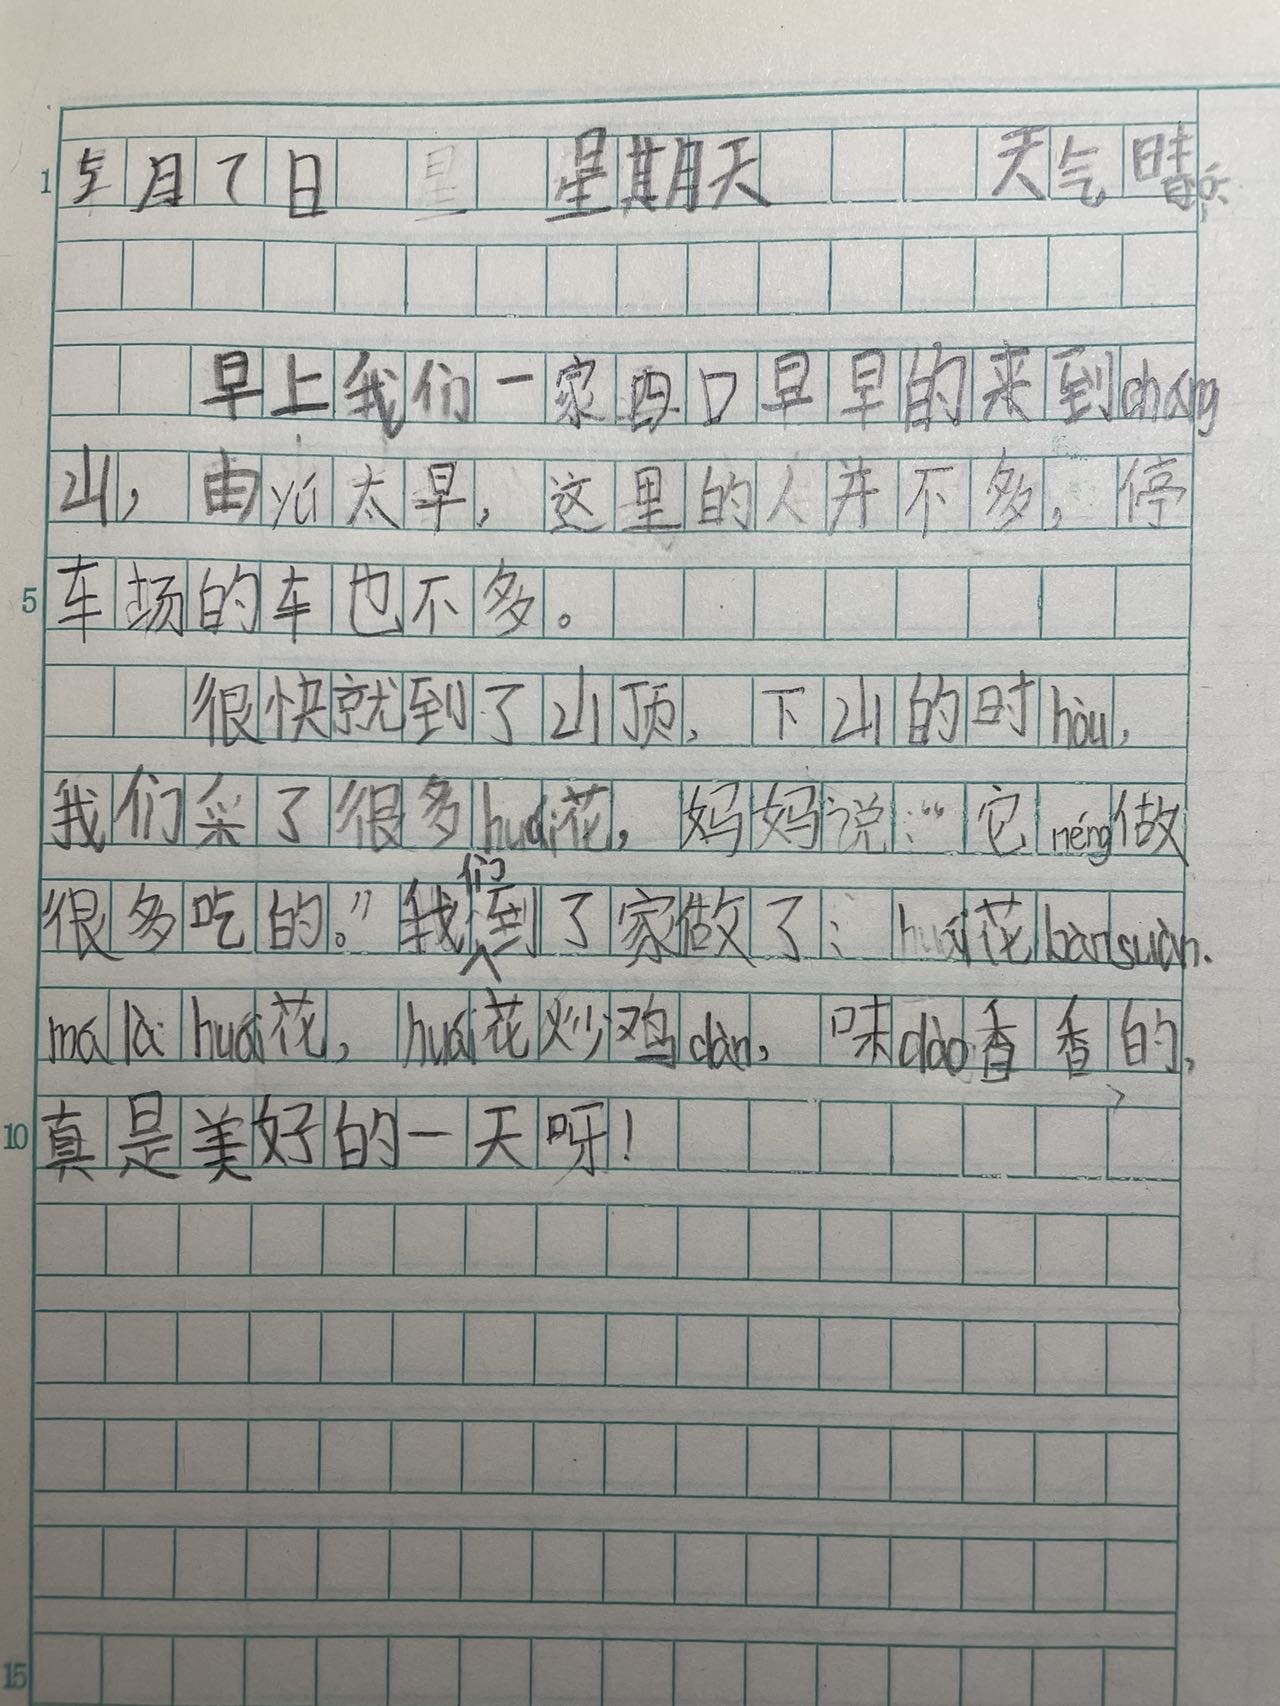 1 5月7日 星期天 天气晴
早上我们一家四口早早的来到cháng
山，由yú太早，这里的人并不多，停
5 车场的车也不多。
很快就到了山顶，下山的时hòu，
我们采了很多huái花，妈妈说：“它néng做
很多吃的。”我们到了家做了：huái花bànsuàn.
má là huái花，huái花炒鸡dàn，味dào香香的，
10 真是美好的一天呀！
15